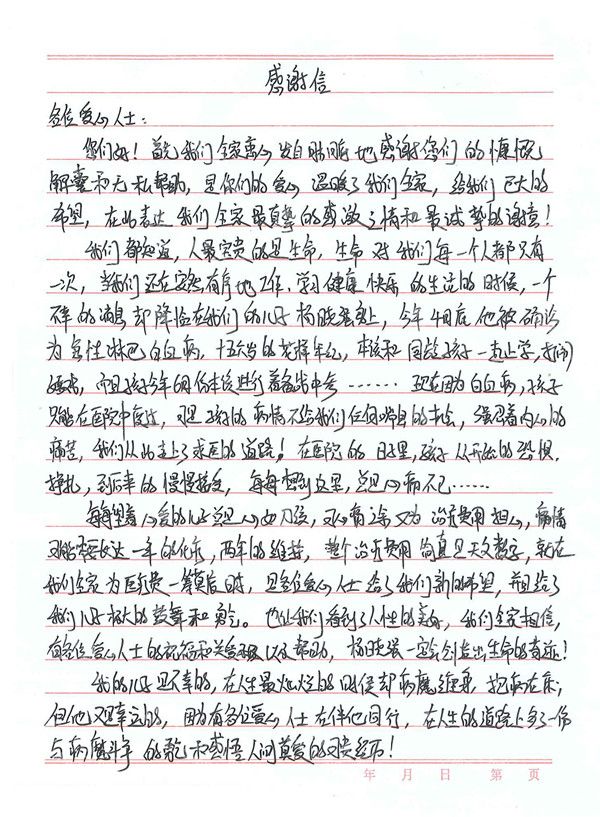 感谢信
各位爱心人士：
您们好！首先我们全家衷心发自肺腑地感谢你们的慷慨
解囊和无私帮助，是你们的爱心温暖了我们全家，给我们巨大的
希望，在此表达我们全家最真挚的感激之情和最诚挚的谢意！
我们都知道，人最宝贵的是生命，生命对我们每一个人都只有
一次，当我们还在安然有序地工作、学习健康快乐的生活的时候，一个
碎的消息却降临在我们的儿子杨晓身上，今年4月底他被确诊
为急性淋巴白血病，十五六岁的花样年纪，本该和同龄孩子一起上学，打闹
嬉戏，而且孩子今年6月份本该进行着中考……现在因为白血病，孩子
只能在医院中度过，可是孩子的病情不给我们任何喘息的机会，强忍着内心的
痛苦，我们从此走上了求医的道路！在医院的日子里，孩子从开始的恐惧、
挣扎，到后来的慢慢接受，每每想到这里，总是心痛不已……
每每望着心爱的儿子总是心如刀绞，可心痛之余又为治疗费用担心，病情
可能要长达一年的化疗，两年的维持，整个治疗费用简直是天文数字，就在
我们全家为医疗费一筹莫展时，是各位爱心人士给了我们新的希望，并且给了
我们儿子极大的鼓舞和勇气。也让我们看到了人性的美好，我们全家相信，
有各位爱心人士的祝福和关爱以及帮助，杨晓一定会创造出生命的奇迹！
我的儿子是不幸的，在人生最灿烂的时候却病魔缠身，抱病在床，
但他又是幸运的，因为有各位爱心人士在伴他同行，在人生的道路上多了一份
与病魔斗争的和感悟人间真爱的可贵经历！
年 月 日 第 页